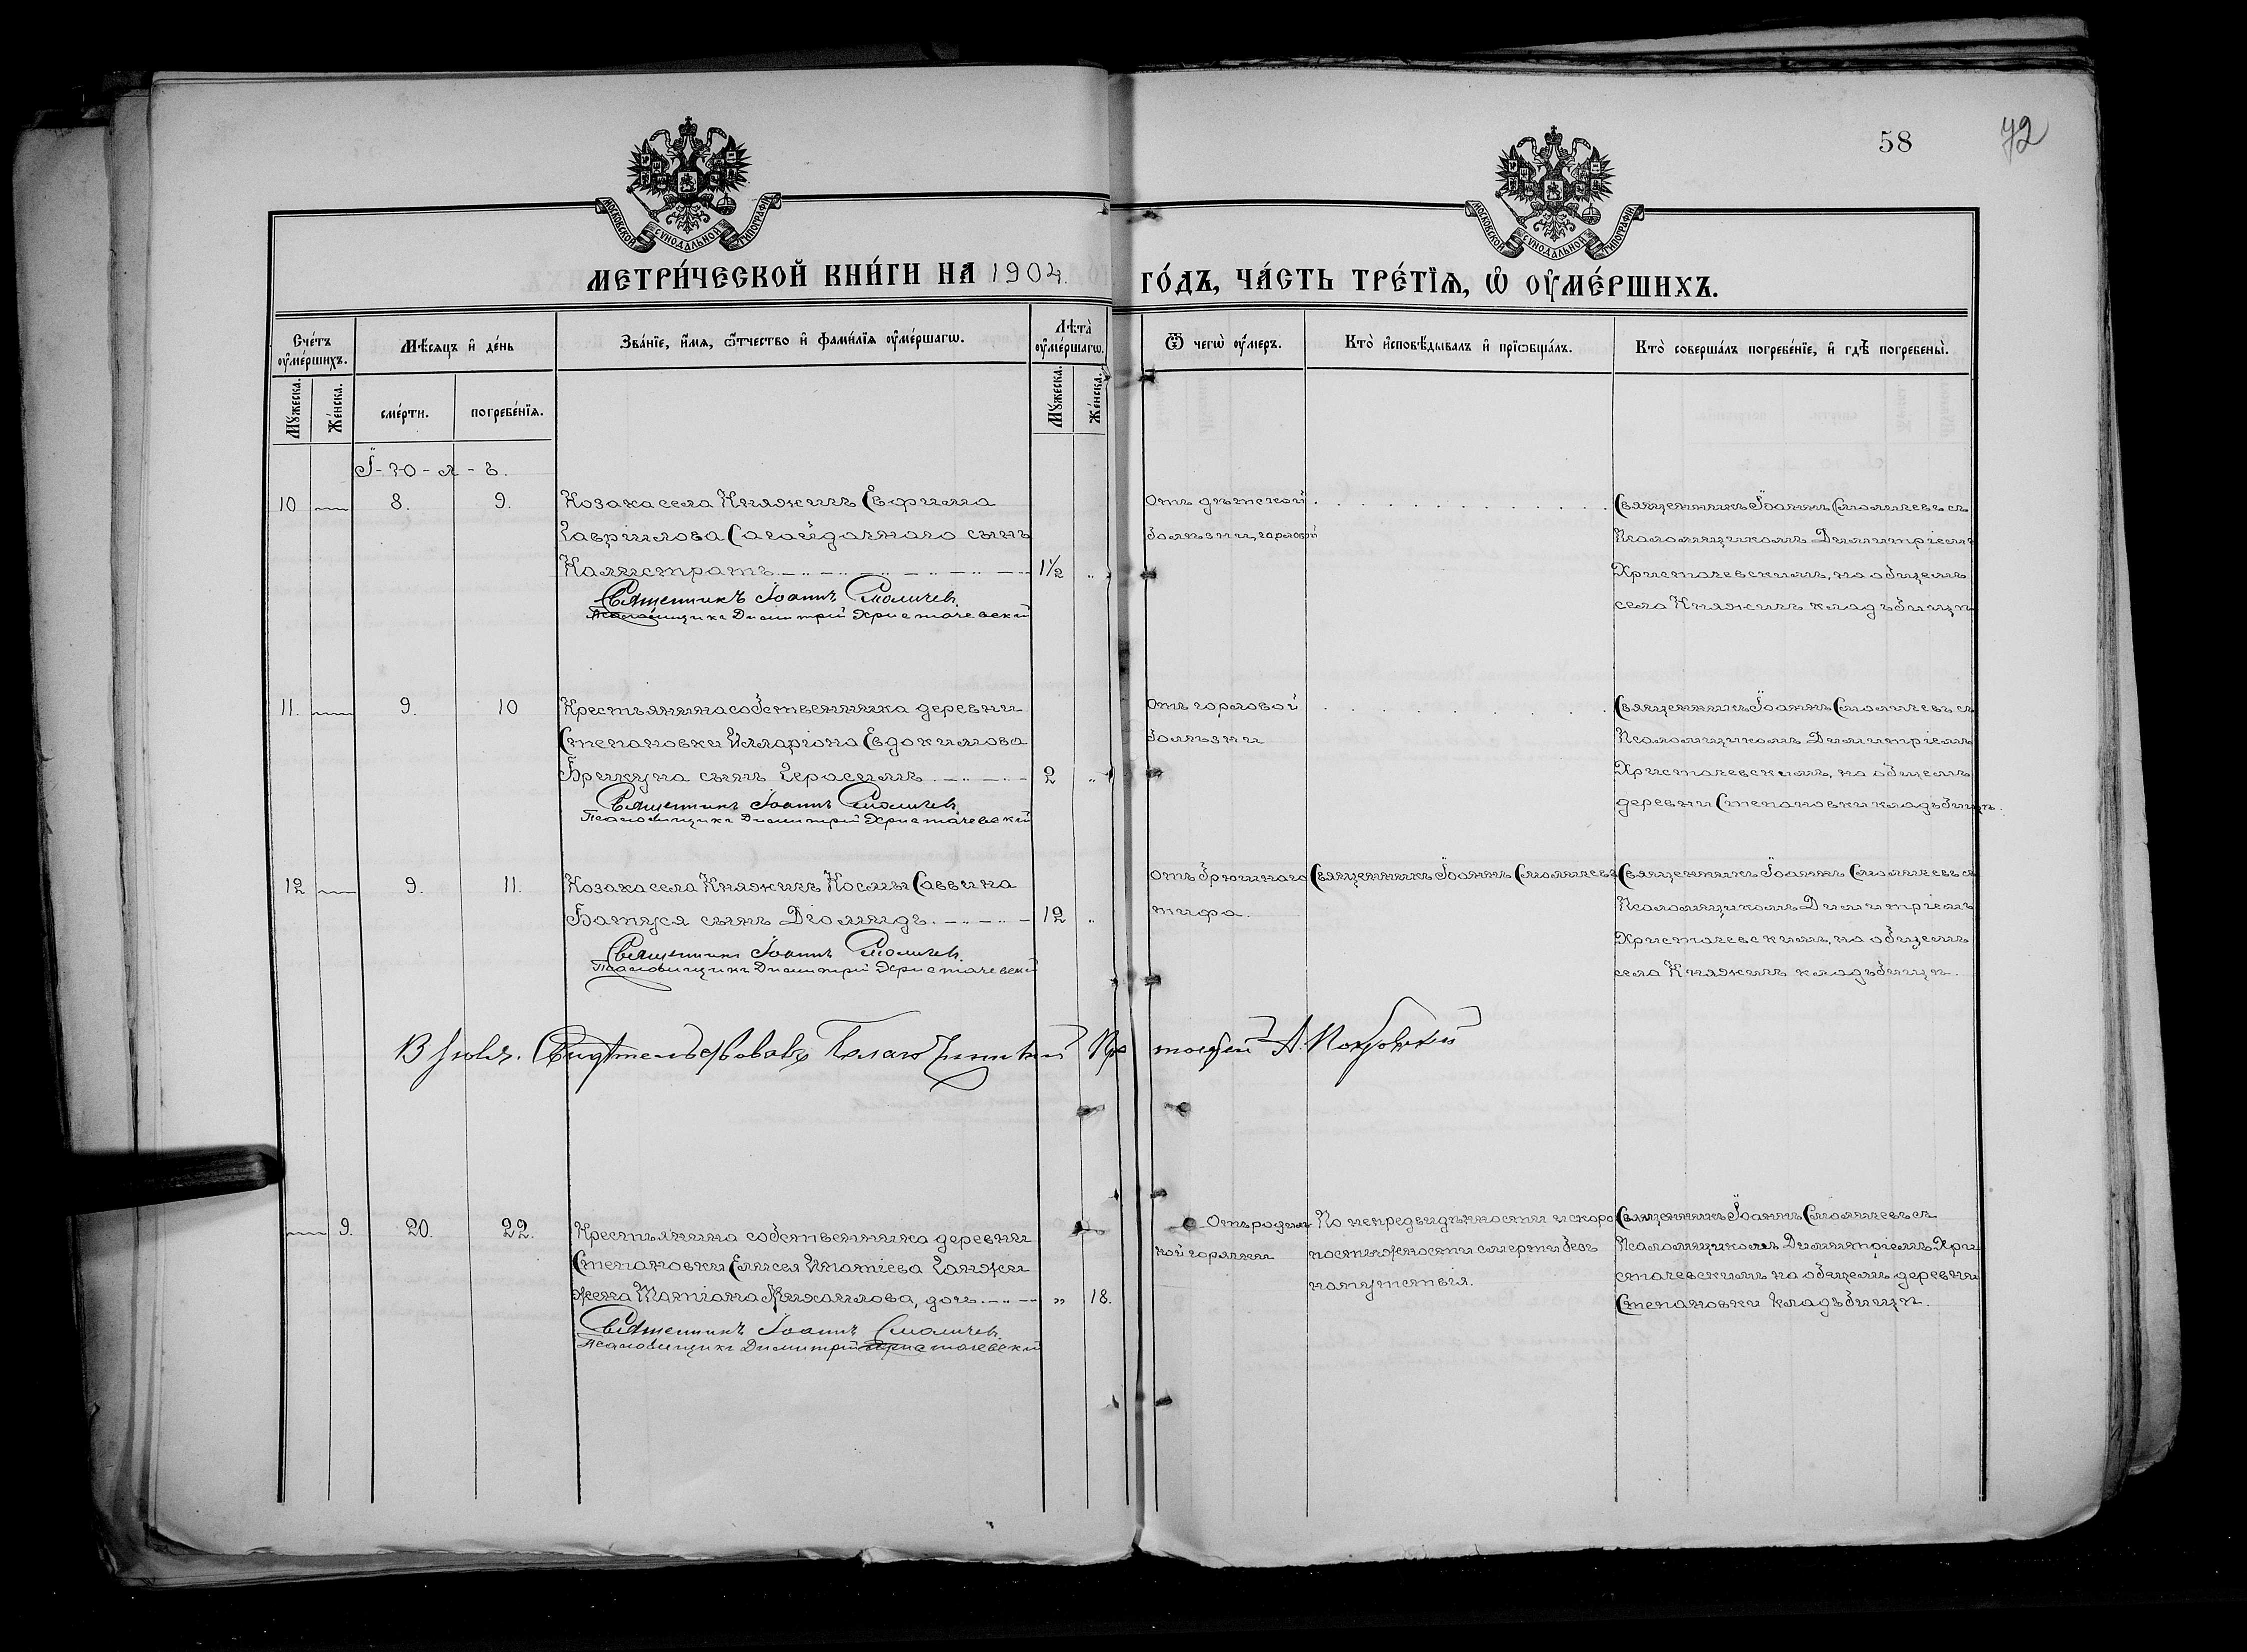 58
72
МОСКОВСКОЙ СѴНОДАЛЬНОЙ ТИПОГРАФІИ
МОСКОВСКОЙ СѴНОДАЛЬНОЙ ТИПОГРАФІИ
МЕТРИ́ЧЕСКОЙ КНИ́ГИ НА 1904. ГО́ДЪ, ЧА́СТЬ ТРЕ́ТІѦ, Ѡ҆ ОУ҆МЕ́РШИХЪ.
Сче́тъ оу҆ме́ршихъ.
Мѣ́сяцъ и҆ де́нь
Зва́нїе, и҆́мя, ѻ҆́тчество и҆ фами́лїя оу҆ме́ршагѡ.
Лѣта̀ оу҆ме́ршагѡ.
Ѿ чегѡ̀ оу҆́меръ.
Кто̀ и҆сповѣ́дывалъ и҆ прїѡбща́лъ.
Кто̀ соверша́лъ погребе́нїе, и҆ гдѣ̀ погребены̀.
Мꙋ́жеска.
Же́нска.
сме́рти.
погребе́нїя.
Мꙋ́жеска.
Же́нска.
І-ю-л-ь.
10 8. 9. Козака села Княжихъ Евфима
Гавріилова Сагайдачнаго сынъ
Калистратъ 1½ "
Священникъ Іоаннъ Смоличевъ.
Псаломщикъ Димитрій Христачевскій
Отъ дѣтской
болѣзни, горловой
Священникъ Іоаннъ Смоличевъ съ
Псаломщикомъ Димитріемъ
Христачевскимъ, на общемъ
села Княжихъ кладбищѣ
11. 9. 10 Крестьянина собственника деревни
Степановки Илларіона Евдокимова
Бринуна сынъ Герасимъ 2 "
Священникъ Іоаннъ Смоличевъ.
Псаломщикъ Димитрій Христачевскій
Отъ горловой
болѣзни
Священникъ Іоаннъ Смоличевъ съ
Псаломщикомъ Димитріемъ
Христачевскимъ, на общемъ
деревни Степановки кладбищѣ.
12 9. 11. Козака села Княжихъ Космы Саввина
Батуся сынъ Діомидъ. 12 "
Священникъ Іоаннъ Смоличевъ.
Псаломщикъ Димитрій Христачевскій
Отъ брюшнаго
тифа.
Священникъ Іоаннъ Смоличевъ
Священникъ Іоаннъ Смоличевъ съ
Псаломщикомъ Димитріемъ
Христачевскимъ, на общемъ
села Княжихъ кладбищѣ.
Свидѣтельствовалъ Благочинный Протоіерей А. Покровскій
9. 20. 22. Крестьянина собственника деревни
Степановки Елисея Игнатіева Ганжи
жена Татіана Михаилова, дочь. " 18.
Священникъ Іоаннъ Смоличевъ.
Псаломщикъ Димитрій Христачевскій
Отъ родиль
ной горячки
По непредвидѣнности и скоро
постижности смерти безъ
напутствія.
Священникъ Іоаннъ Смоличевъ съ
Псаломщикомъ Димитріемъ Хри
стачевскимъ на общемъ деревни
Степановки кладбищѣ.